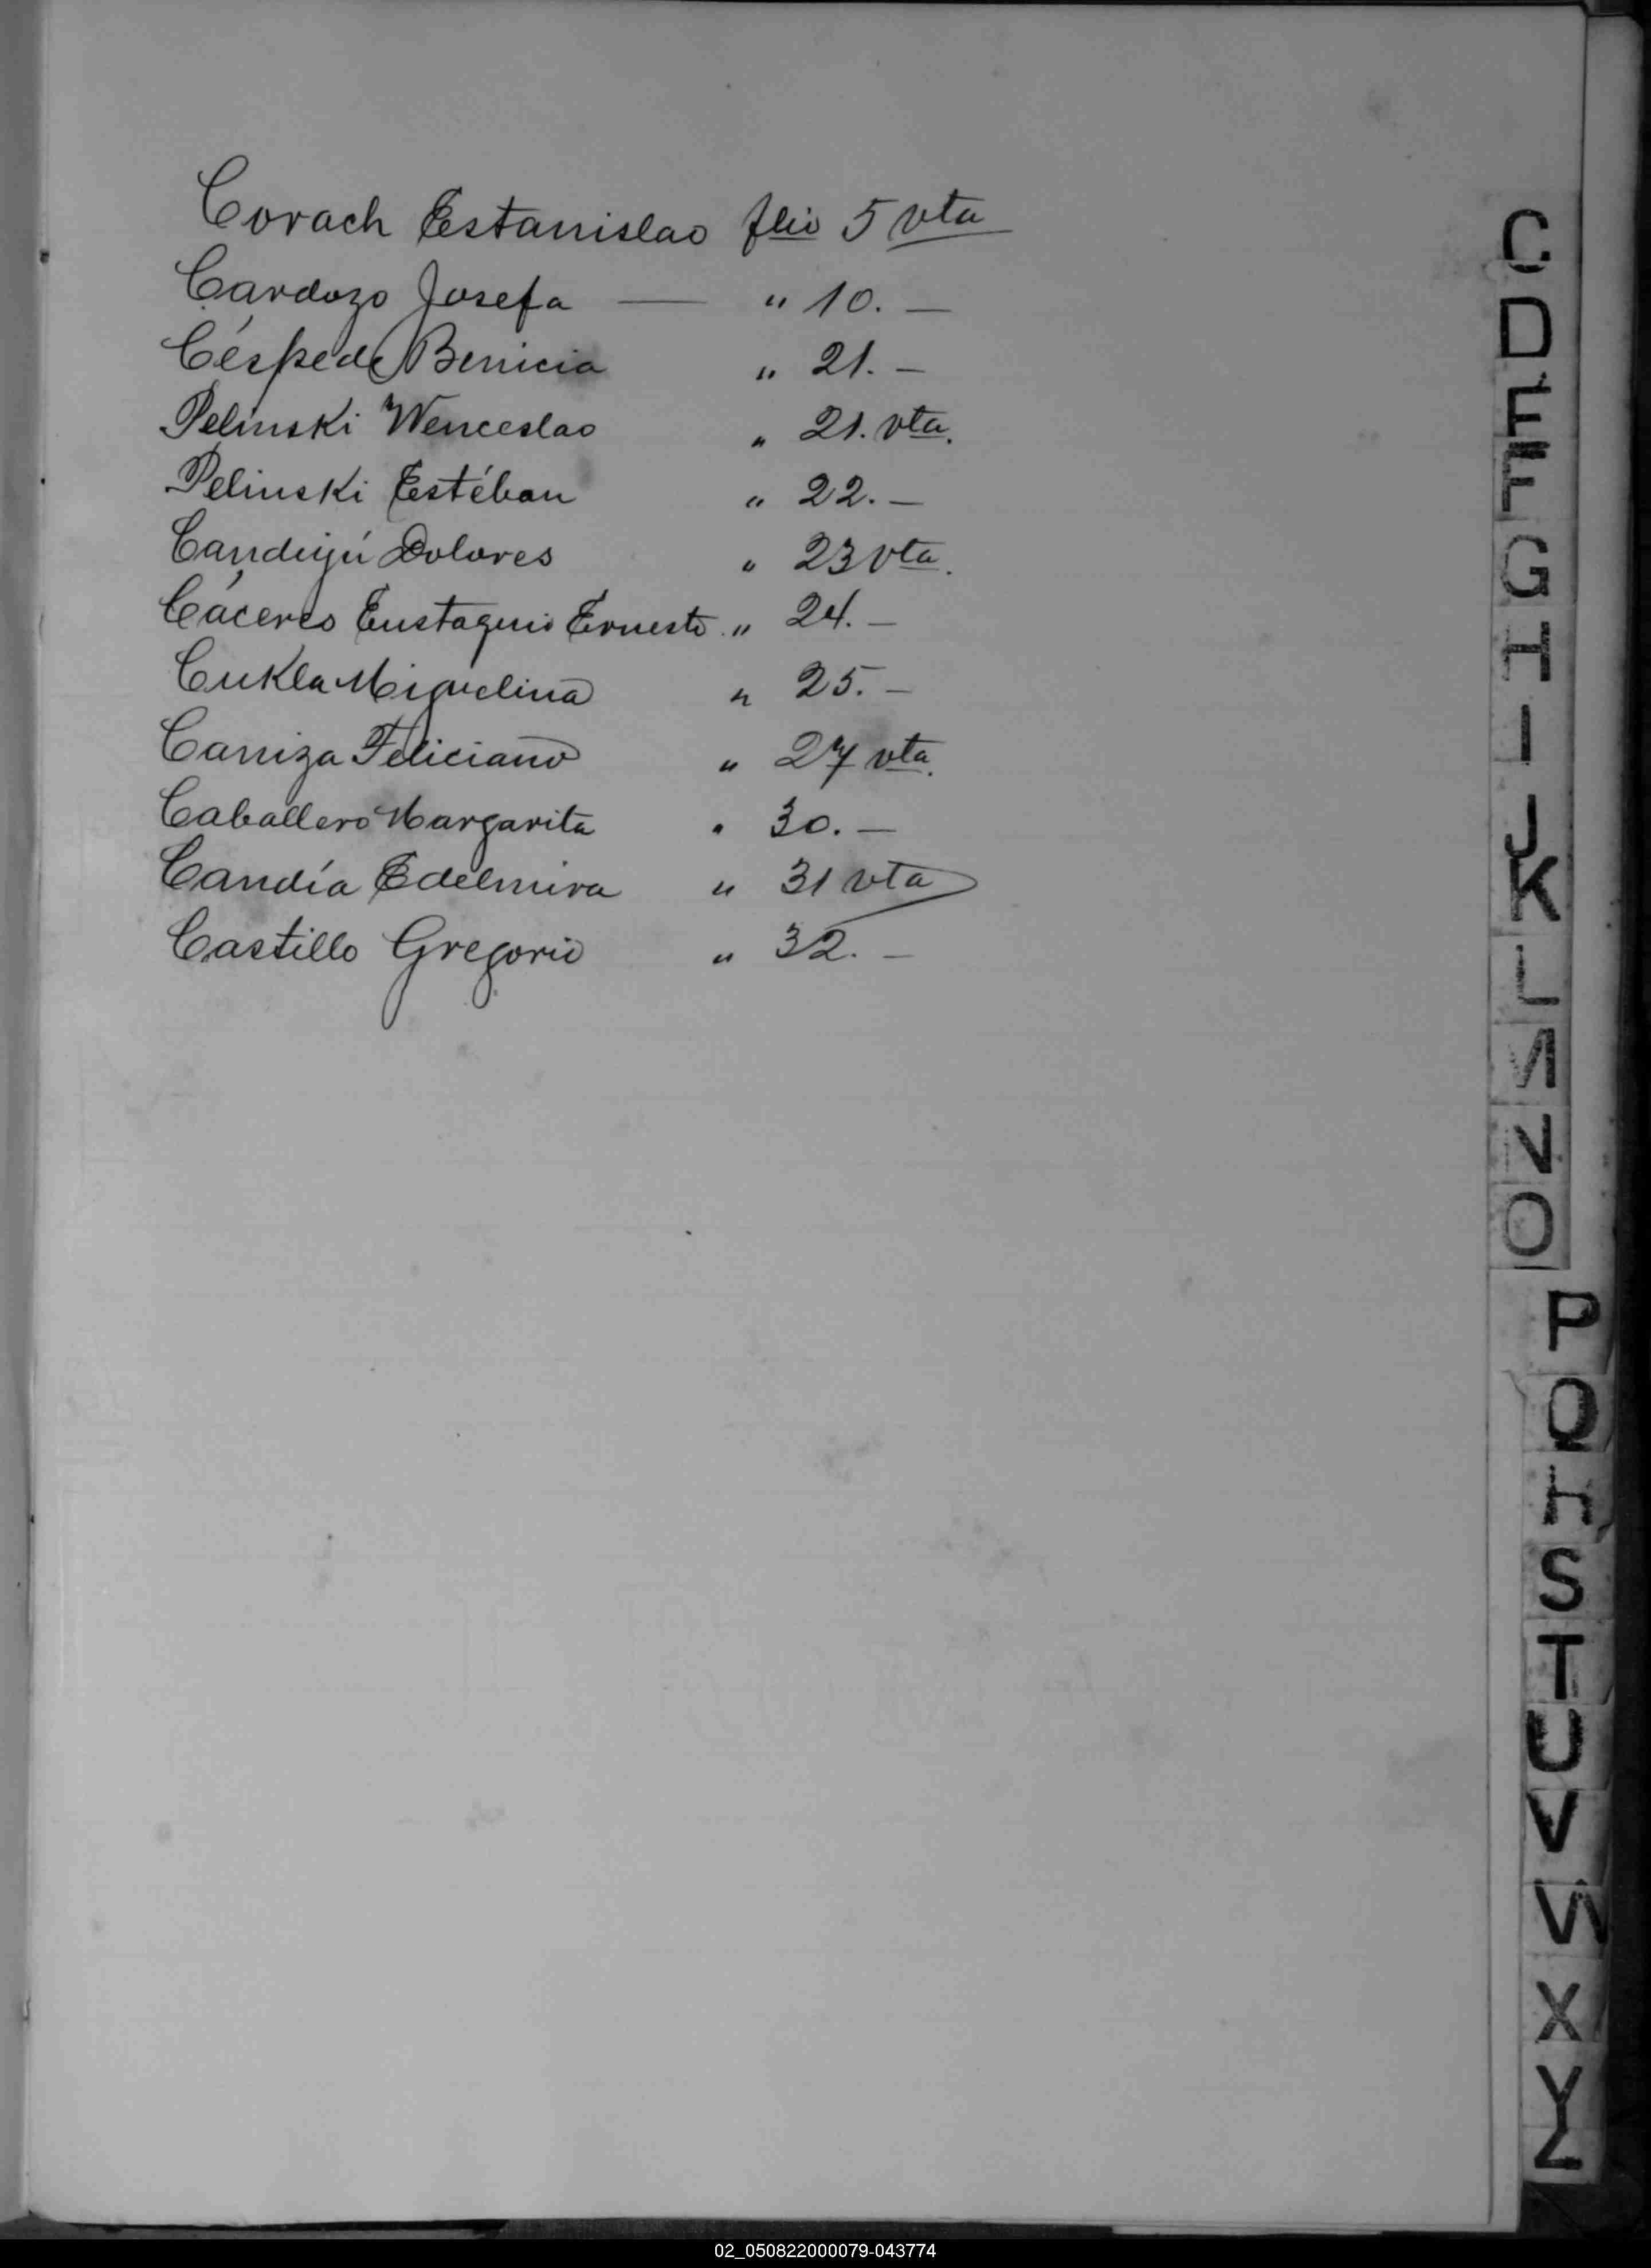 Corach Estanislao flio 5 vta
Cardozo Josefa — " 10. —
Céspede Benicia " 21. —
Pelinski Wenceslao " 21. vta.
Pelinski Estéban " 22. —
Dolores " 23 vta.
Cáceres Eustaquio Ernesto " 24. —
Cukla Miguelina " 25. —
Caniza Feliciano " 27 vta.
Caballero Margarita " 30. —
Candía Edelmira " 31 vta
Castillo Gregorio " 32. —
C
D
E
F
G
H
I
J
K
L
M
N
O
P
Q
R
S
T
U
V
W
X
Y
Z
02_050822000079-043774